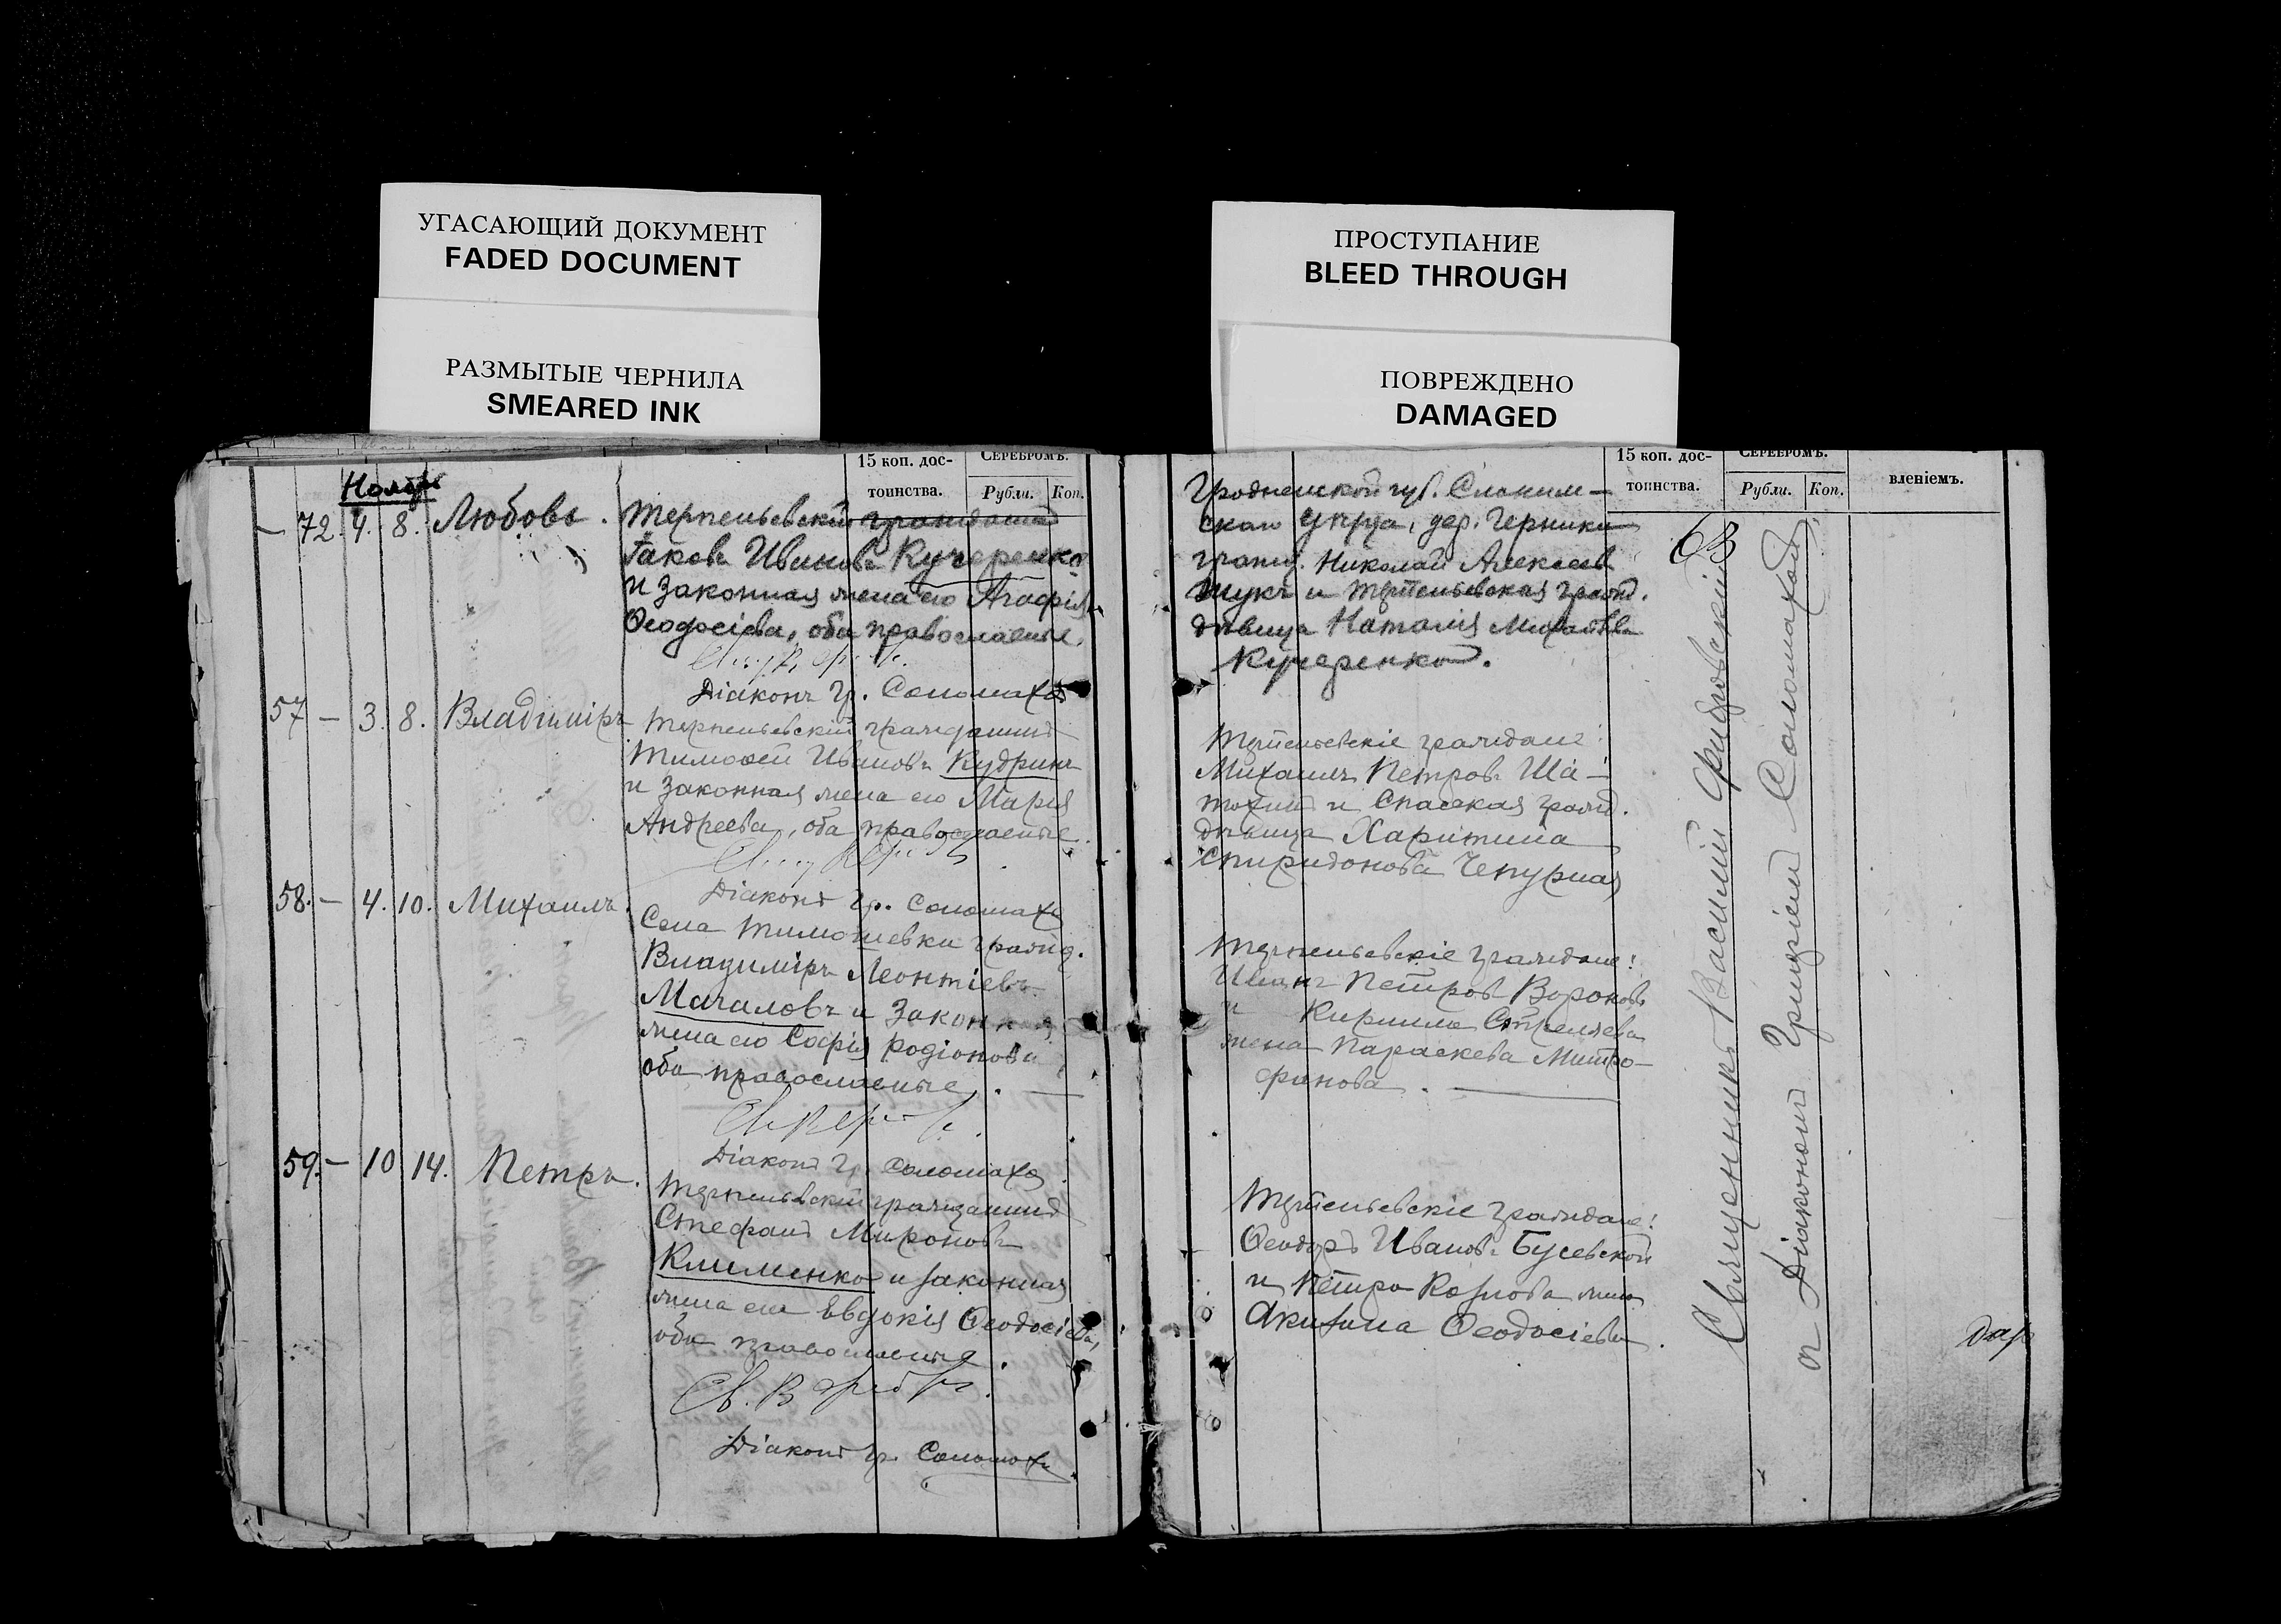 УГАСАЮЩИЙ ДОКУМЕНТ
FADED DOCUMENT
РАЗМЫТЫЕ ЧЕРНИЛА
SMEARED INK
ПРОСТУПАНИЕ
BLEED THROUGH
ПОВРЕЖДЕНО
DAMAGED
15 коп. дос-
тоинства.
Серебромъ.
Рубли. Коп.
Ноябрь
72. 4. 8. Любовь. Терпеньевскій гражданинъ
Іаковъ Ивановъ Кучеренко
и законная жена его Агафія
Ѳеодосіева, оба православные.
Діаконъ Гр. Соломаха
57 — 3. 8. Владиміръ Терпеньевскій гражданинъ
Тимоѳей Ивановъ Кудринъ
и законная жена его Марія
Андреева, оба православные.
Діаконъ Гр. Соломаха
58. — 4. 10. Михаилъ. Села Тимошевки гражд.
Владиміръ Леонтіевъ
Мачаловъ и законная
жена его Софія Родіонова
оба православные.
Діаконъ Гр. Соломаха
59. — 10 14. Петръ. Терпеньевскій гражданинъ
Стефанъ Мироновъ
Клименко и законная
жена его Евдокія Ѳеодосіева,
оба православные.
Діаконъ Гр. Соломаха
15 коп. дос-
тоинства.
Серебромъ.
Рубли. Коп.
вленіемъ.
Гродненской губ. Слоним-
скаго уѣзда, дер. Черники
гражд. Николай Алексеев
Жукъ и Терпеньевская гражд.
дѣвица Наталія
Кучеренкова.
Терпеньевскіе граждане:
Михаилъ Петровъ Ша-
и Спасская гражд.
дѣвица Харитина
Спиридонова Чепурная
Терпеньевскіе граждане:
Иванъ Петровъ Вороновъ
и Кирилла Стреляева
жена Параскева Митро-
фанова.
Терпеньевскіе граждане:
Ѳеодоръ Ивановъ Бусевской
и Петра Козлова жена
Акилина Ѳеодосіева.
63
Священникъ Василій Фридровскій
и Діаконъ Григорій Соломаха